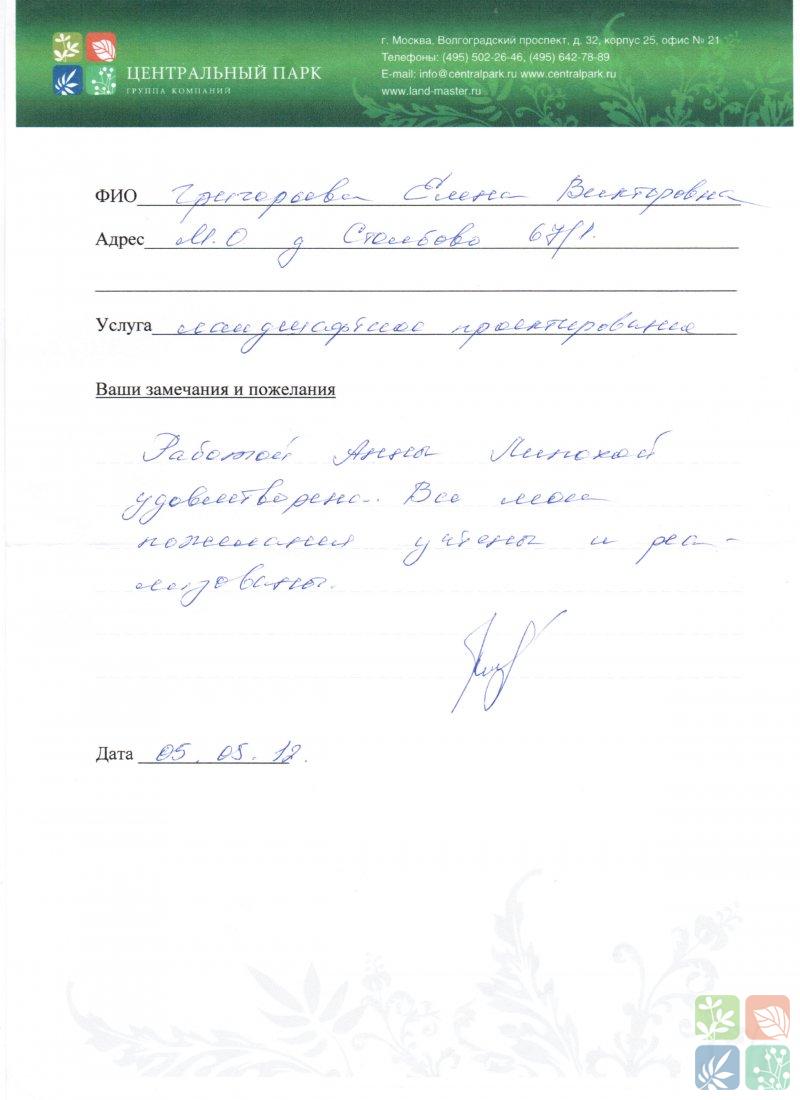 ЦЕНТРАЛЬНЫЙ ПАРК
ГРУППА КОМПАНИЙ
г. Москва, Волгоградский проспект, д. 32, корпус 25, офис № 21
Телефоны: (495) 502-26-46, (495) 642-78-89
E-mail: info@centralpark.ru www.centralpark.ru
www.land-master.ru
ФИО Григорьева Елена Викторовна
Адрес М.О д Столбово 67/1.
Услуга ландшафтное проектирование
Ваши замечания и пожелания
Работой Анны
удовлетворена. Все мои
пожелания учтены и реа-
лизованы.
Дата 05. 05. 12.